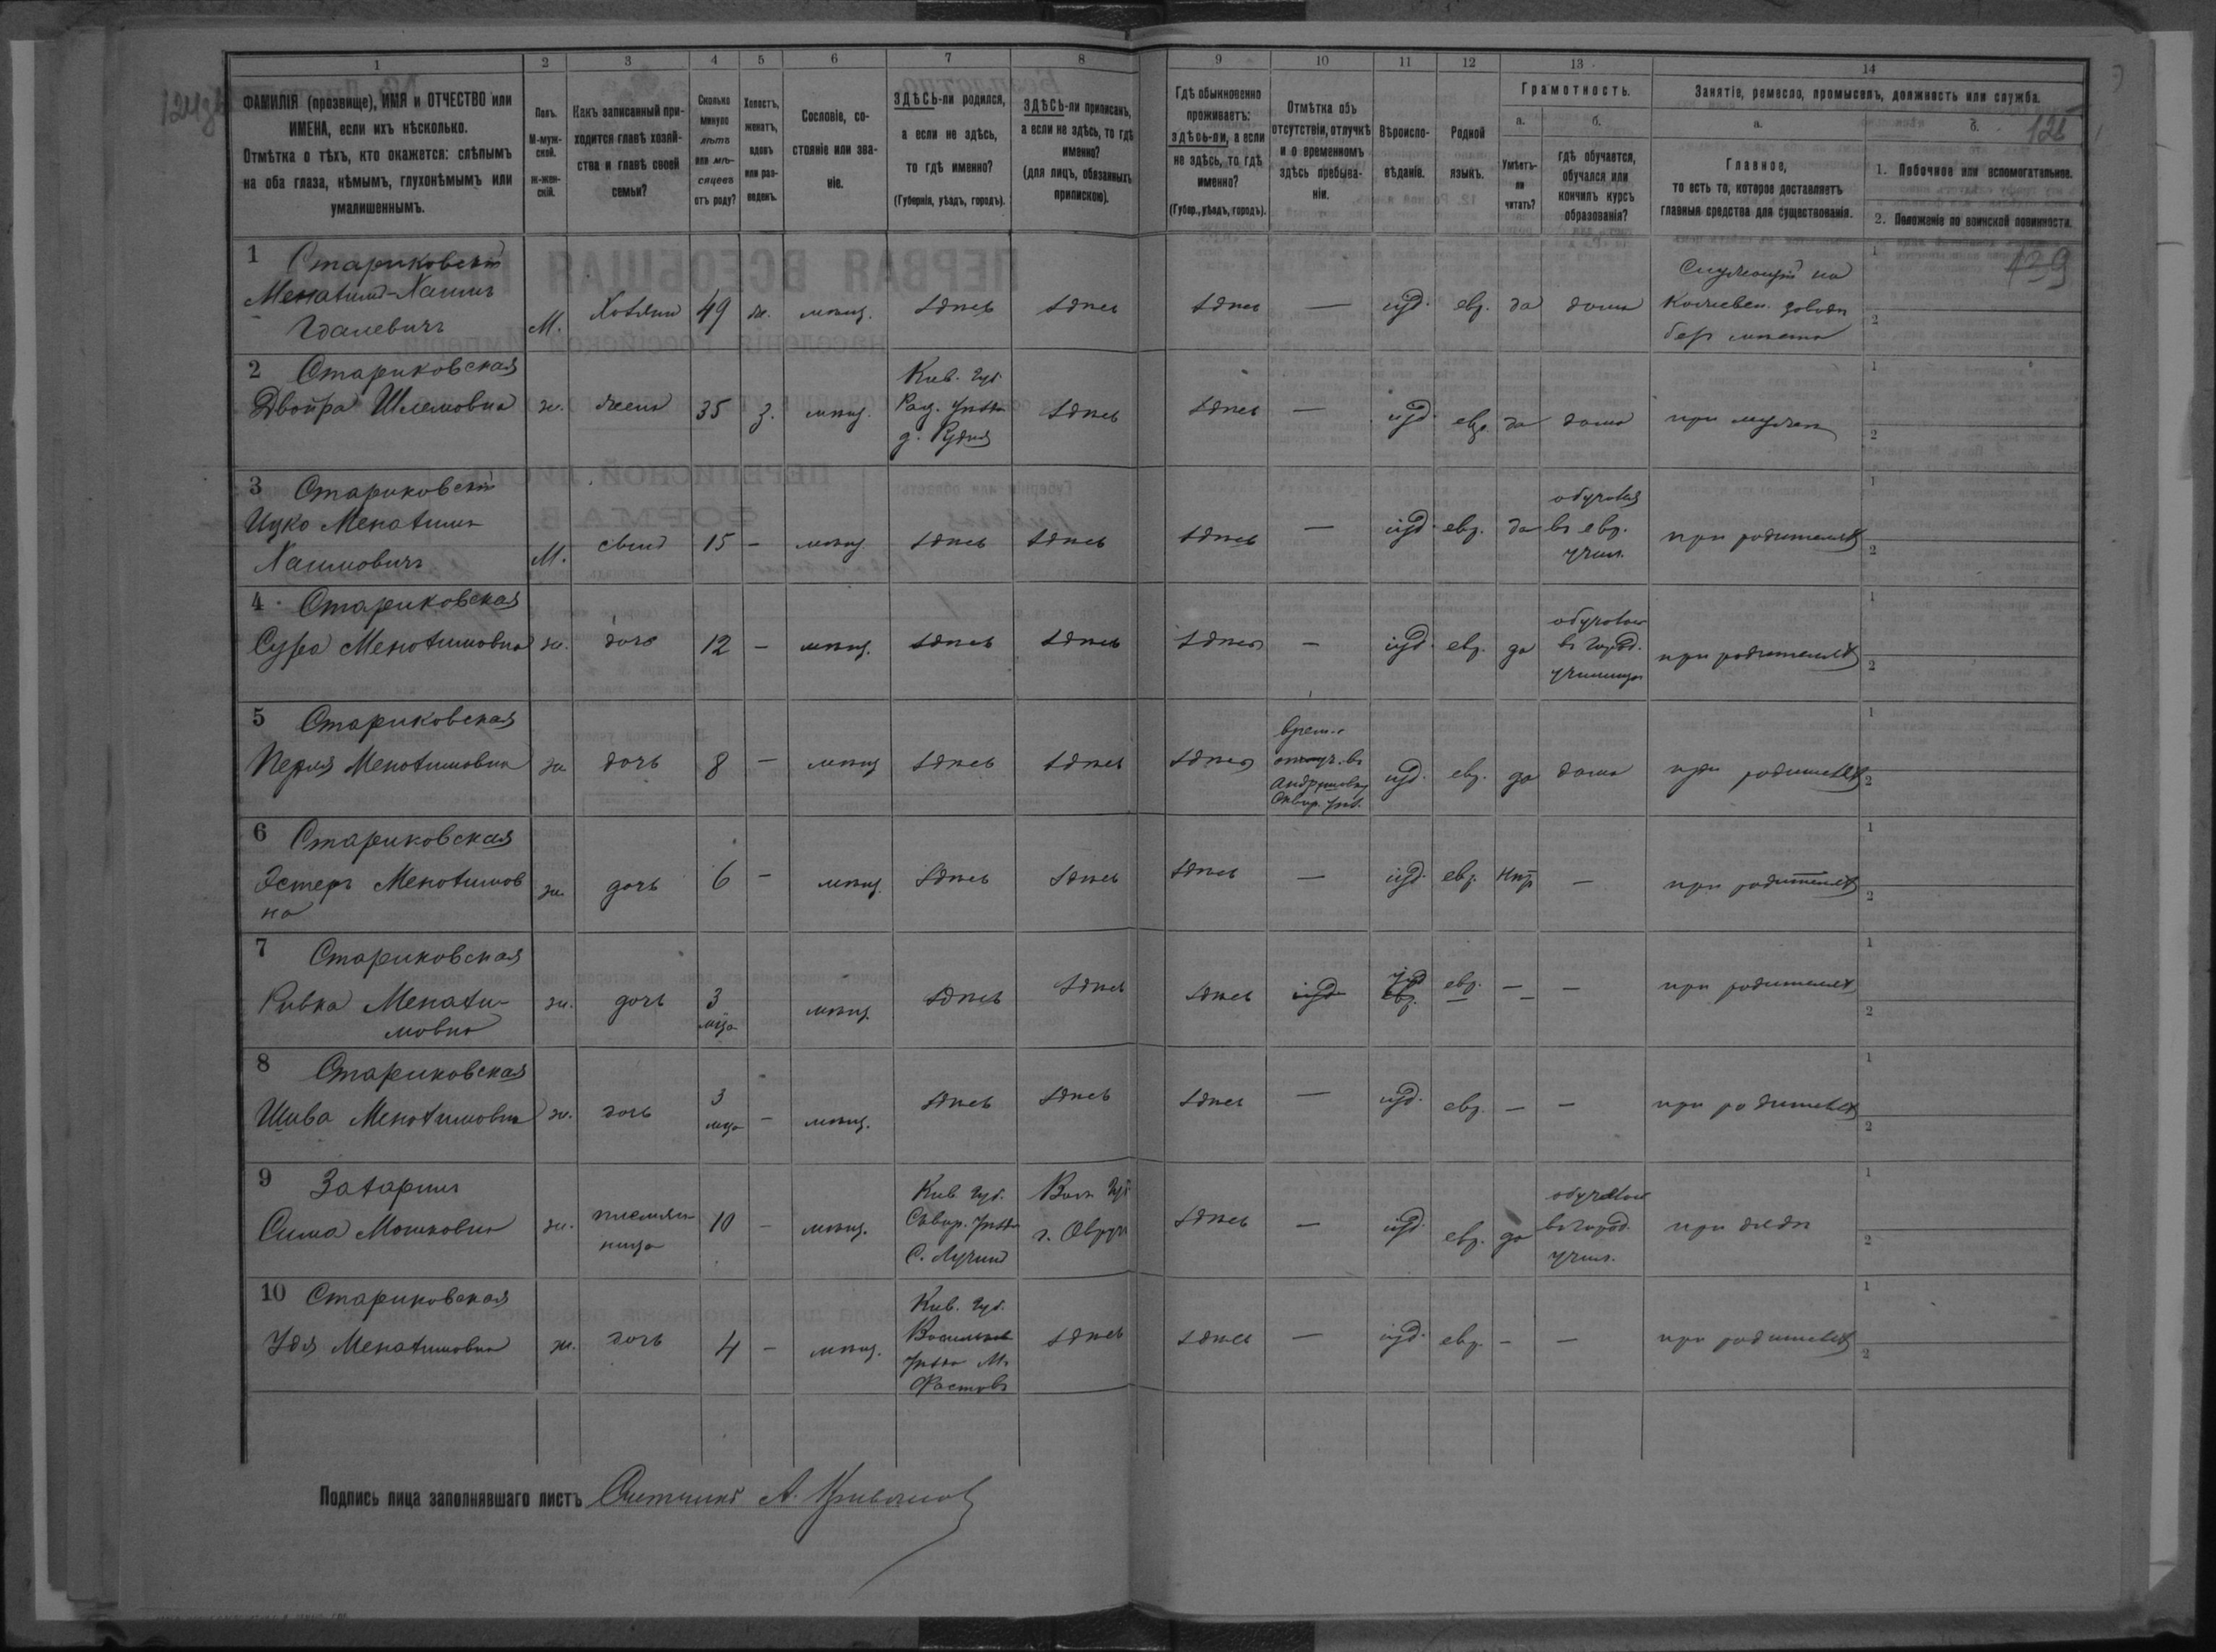 1 2 3 4 5 6 7 8 9 10 11 12 13 14
ФАМИЛІЯ (прозвище), ИМЯ и ОТЧЕСТВО или
ИМЕНА, если ихъ нѣсколько.
Отмѣтка о тѣхъ, кто окажется: слѣпымъ
на оба глаза, нѣмымъ, глухонѣмымъ или
умалишеннымъ.
Полъ.
М-муж-
ской.
ж-жен-
скій.
Какъ записанный при-
ходится главѣ хозяй-
ства и главѣ своей
семьи?
Сколько
минуло
лѣтъ
или мѣ-
сяцевъ
отъ роду?
Холостъ,
женатъ,
вдовъ
или раз-
веденъ.
Сословіе, со-
стояніе или зва-
ніе.
ЗДѢСЬ-ли родился,
а если не здѣсь,
то гдѣ именно?
(Губернія, уѣздъ, городъ).
ЗДѢСЬ-ли приписанъ,
а если не здѣсь, то гдѣ
именно?
(для лицъ, обязанныхъ
припискою).
Гдѣ обыкновенно
проживаетъ:
здѣсь-ли, а если
не здѣсь, то гдѣ
именно?
(Губер., уѣздъ, городъ).
Отмѣтка объ
отсутствіи, отлучкѣ
и о временномъ
здѣсь пребыва-
ніи.
Вѣроиспо-
вѣданіе.
Родной
языкъ.
Грамотность.
а.
Умѣетъ-
ли
читать?
б.
гдѣ обучается,
обучался или
кончилъ курсъ
образованія?
Занятіе, ремесло, промыселъ, должность или служба.
а.
Главное,
то есть то, которое доставляетъ
главныя средства для существованія.
б.
125
1. Побочное или вспомогательное.
2. Положеніе по воинской повинности.
139
1 Стариковскій
Менахимъ-Хаимъ
Гдалевичъ
М. Хозяинъ 49 ж. мѣщ. здѣсь здѣсь здѣсь — іуд. евр. да дома
Служащій на
Кожевен. заводѣ
безъ мѣста
2 Стариковская
Двойра Шлемовна ж. жена 35 з. мѣщ.
Кіев. губ.
Рад. уѣзда
д. Рудня
здѣсь здѣсь — іуд. евр. да дома при мужѣ
3 Стариковскій
Ицко Менахимъ
Хаимовичъ
М. сынъ 15 — мѣщ. здѣсь здѣсь здѣсь — іуд. евр. да
обучался
въ евр.
учил.
при родителяхъ
4 Стариковская
Сура Менахимовна ж. дочь 12 — мѣщ. здѣсь здѣсь здѣсь — іуд. евр. да
обучалась
въ город.
училищѣ
при родителяхъ
5 Стариковская
Перля Менахимовна ж. дочь 8 — мѣщ. здѣсь здѣсь здѣсь
врем.
отлуч. въ
Андрушовку
Сквир. уѣз.
іуд. евр. да дома при родителяхъ
6 Стариковская
Эстеръ Менахимов
на
ж. дочь 6 — мѣщ. здѣсь здѣсь здѣсь — іуд. евр. нѣтъ — при родителяхъ
7 Стариковская
Ривка Менахи-
мовна
ж. дочь 3
мца
мѣщ. здѣсь здѣсь здѣсь іуд евр. — — при родителяхъ
8 Стариковская
Шива Менахимовна ж. дочь 3
мца
— мѣщ. здѣсь здѣсь здѣсь — іуд. евр. — — при родителяхъ
9
Сима Мошковна ж. племян-
ница
10 — мѣщ.
Кіев. губ.
Сквир. уѣзда
С. Лучинъ
Вол. губ
г. Овручъ
здѣсь — іуд. евр. да
обучалась
въ город.
учил.
при дядѣ
10 Стариковская
Удя Менахимовна ж. дочь 4 — мѣщ.
Кіев. губ.
Васильков
уѣзда М.
Фастовъ
здѣсь здѣсь — іуд. евр. — — при родителяхъ
Подпись лица заполнявшаго листъ Счетчикъ А.